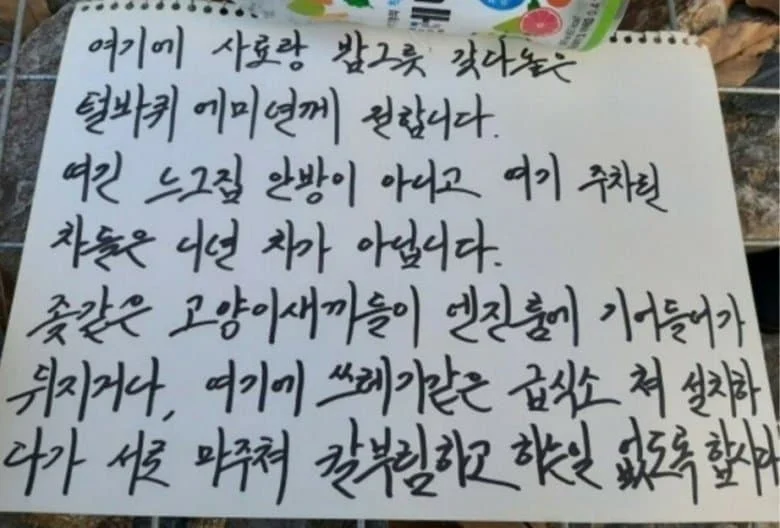 여기에 사료랑 밥그릇 갖다놓은
털바퀴 에미년께 전합니다.
여긴 느그집 안방이 아니고 여기 주차된
차들은 니년 차가 아닙니다.
좆같은 고양이새끼들이 엔진룸에 기어들어가
뒤지거나, 여기에 쓰레기같은 급식소 쳐 설치하
다가 서로 마주쳐 칼부림하고 하는일 없도록 합시다